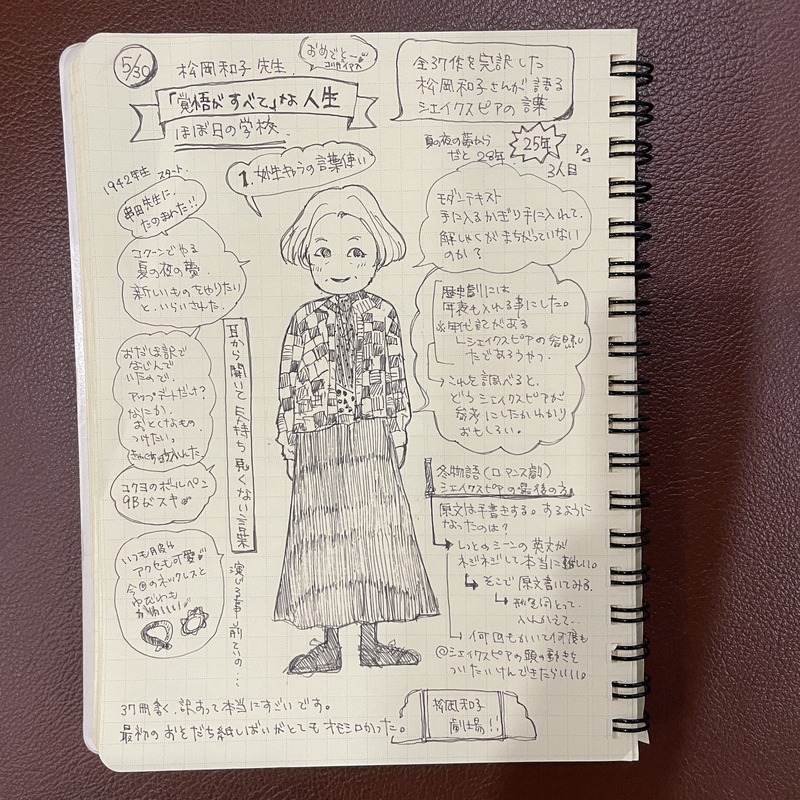 5/30
松岡和子先生.
おめでとー
「覚悟がすべて」な人生
ほぼ日の学校.
全37作を完訳した
松岡和子さんが語る
シェイクスピアの言葉
夏の夜の夢から
だと28年
25年
3人目
1942年生 スタート.
串田先生に、
たのまれた!!
1.女性キャラの言葉使い
モダンテキスト
手に入るかぎり手に入れて.
解しゃくがまちがっていない
のか?
コクーンでやる
夏の夜の夢.
新しいものをやりたい
と、いらいされた.
歴史劇には
年表も入れる事にした。
※年代記がある
シェイクスピアの
たであろうやつ.
これを調べると、
どうシェイクスピアが
参考にしたかわかり
おもしろい。
おだしま訳で
なじんで
いたので、
アップデートだけ?
なにか、
おとくなもの
つけたい。
耳から聞いて長持ち 見にくくない言葉
演じる事前ていの...
コクヨのボールペン
9Bがスキ
冬物語(ロマンス劇)
シェイクスピアの最後の方.
原文は手書きする。するように
なったのは?
しっとのシーンの英文が
ネジネジして本当に難しい。
そこで 原文書いてみる.
何回もかいて何度も
@シェイクスピアの頭の動きを
ついたいけんできたらいいい。
いつも服や
アクセも可愛
今日のネックレスと
ゆびわも
かわいい!
37冊書く、訳すって本当にすごいです。
最初のおそだち紙しばいがとてもオモシロかった。
松岡和子
劇場!!